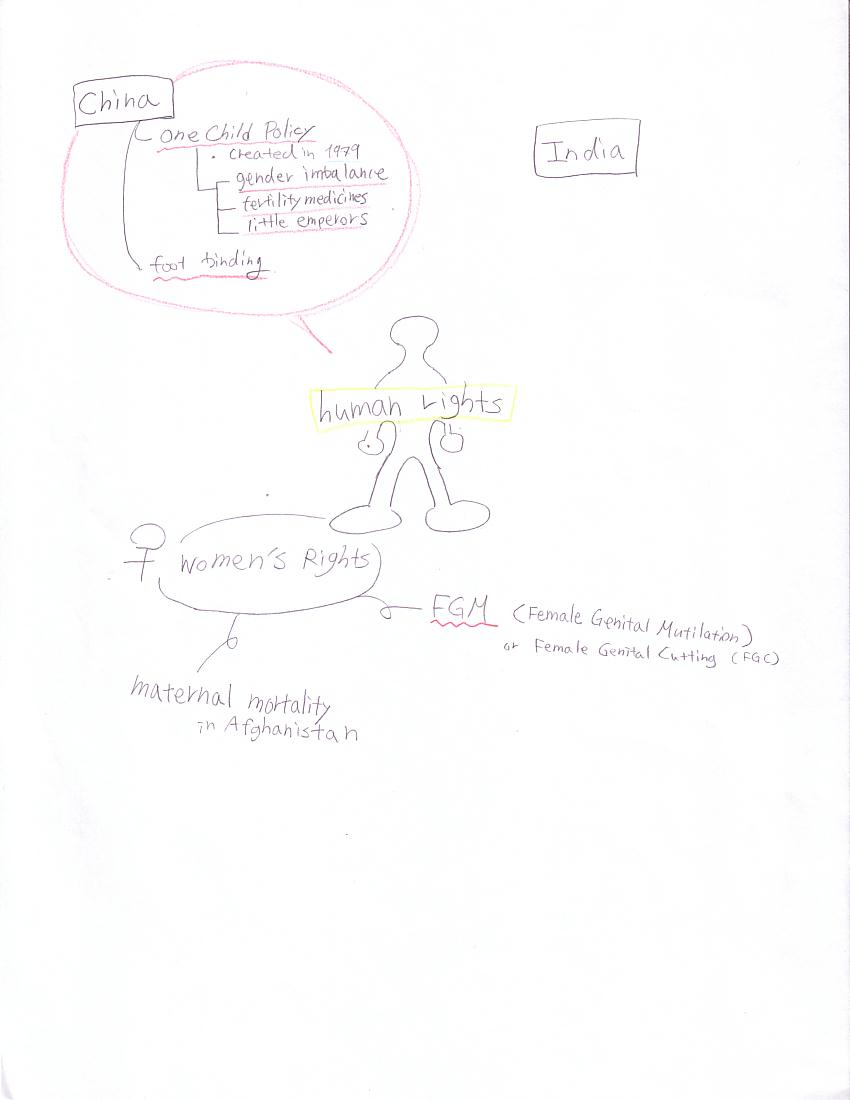 China
One Child Policy
• created in 1979
gender imbalance
fertility medicines
little emperors
foot binding
India
human rights
Women's Rights
FGM (Female Genital Mutilation)
or Female Genital Cutting (FGC)
maternal mortality
in Afghanistan